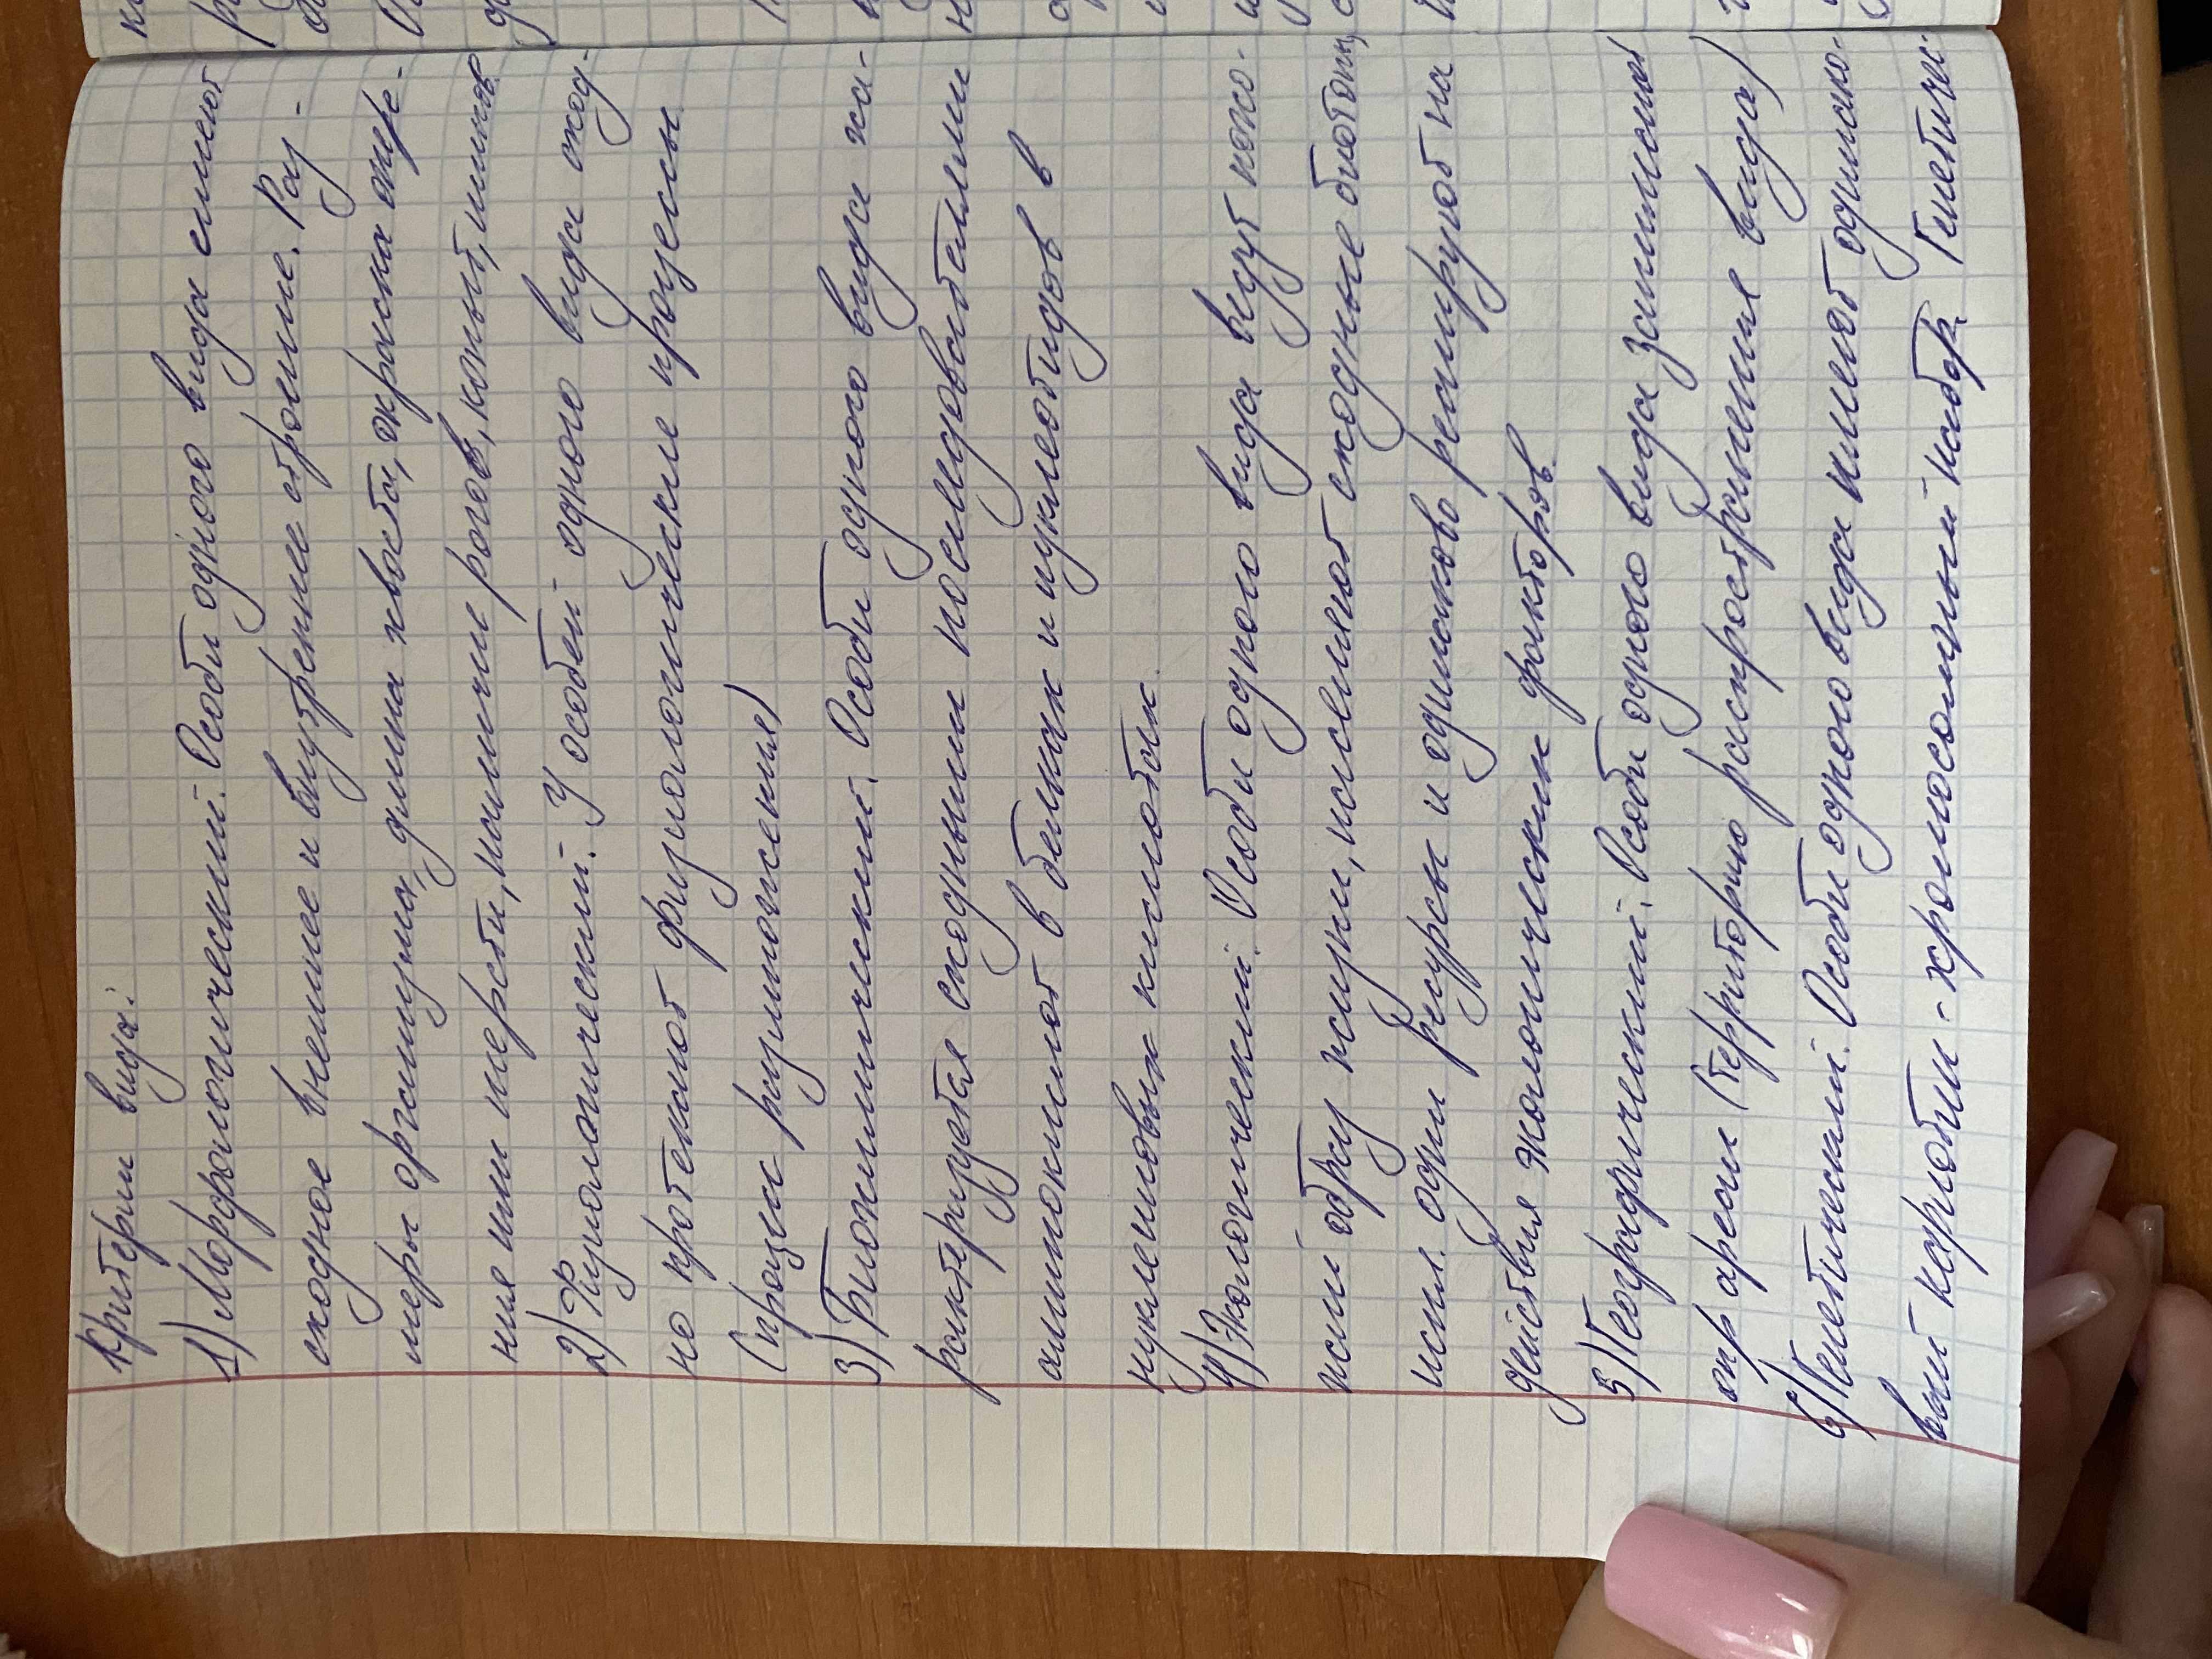 Критерии вида:
1) Морфологический. Особи одного вида имеют
сходное внешнее и внутренние строение. Раз-
меры организма, длина хвоста, окраска опе-
ния или шерсти, наличии рогов, копыт, шипов
2) Физиологический. У особей одного вида сход-
но протекают физиологические процессы
(процесс размножения)
3) Биохимический. Особи одного вида ха-
рактеризуется сходными последовательми
аминокислот в белках и нуклеотидов в
нуклеиновых кислотах.
4) Экологический. Особи одного вида ведут похо-
жий образ жизни, населяют сходные биотопы,
исп. одни ресурсы и одинаково реагируют на
действия экологических факторов.
5) Географический. Особи одного вида занимают
опр ареал (территорию распространения вида)
6) Генетический. Особи одного вида имеют одинако-
вый кариотип - хромосомный набор. Генетич.